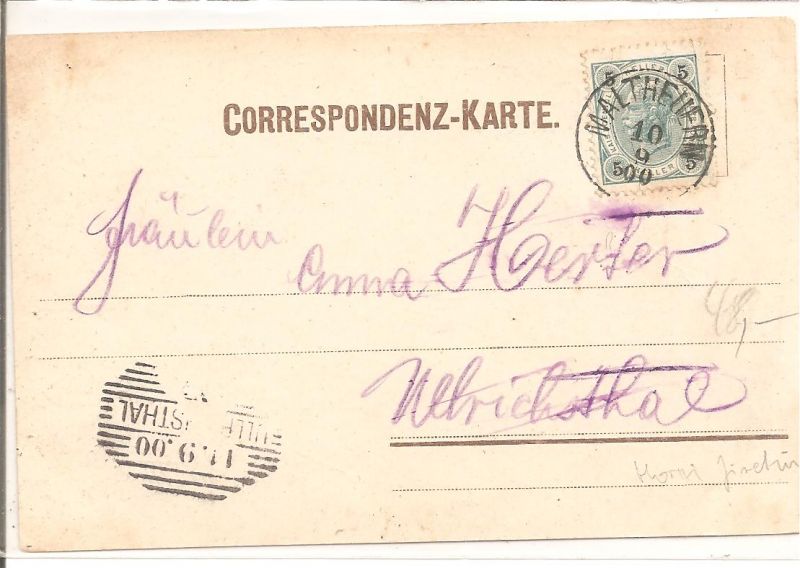 CORRESPONDENZ-KARTE.
5 HELLER 5
MALTHEUERN
10
9
00
5 HELLER 5
Fräulein
Anna Herter
48,-
Ullrichsthal
ULLRICHSTHAL
11.9.00
Horní Jiřetín